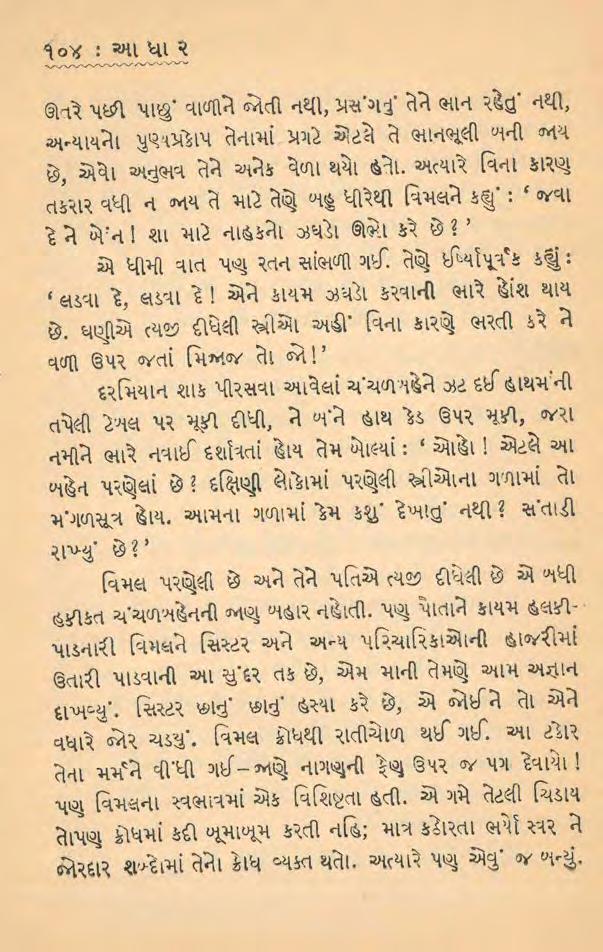 ૧૦૪ : આ ધા ર
ઊતરે પછી પાછું વાળીને જોતી નથી, પ્રસંગનું તેને ભાન રહેતું નથી,
અન્યાયનો પુણ્યપ્રકોપ તેનામાં પ્રગટે એટલે તે ભાનભૂલી બની જાય
છે, એવો અનુભવ તેને અનેક વેળા થયો હતો. અત્યારે વિના કારણ
તકરાર વધી ન જાય તે માટે તેણે બહુ ધીરેથી વિમલને કહ્યું : ‘ જવા
દે ને બેʼન! શા માટે નાહકનો ઝઘડો ઊભો કરે છે?’
એ ધીમી વાત પણ રતન સાંભળી ગઈ. તેણે ઈર્ષ્યાપૂર્વક કહ્યું :
‘ લડવા દે, લડવા દે! એને કાયમ ઝઘડો કરવાની ભારે હોંશ થાય
છે. ધણીએ ત્યજી દીધેલી સ્ત્રીઓ અહીં વિના કારણે ભરતી કરે ને
વળી ઉપર જતાં મિજાજ તો જો!’
દરમિયાન શાક પીરસવા આવેલાં ચંચળબહેને ઝટ દઈ હાથમાંની
તપેલી ટેબલ પર મૂકી દીધી, ને બંને હાથ કેડ ઉપર મૂકી, જરા
નમીને ભારે નવાઈ દર્શાવતાં હોય તેમ બોલ્યાં : ‘ ઓહો! એટલે આ
બહેન પરણેલાં છે? દક્ષિણી લોકોમાં પરણેલી સ્ત્રીઓના ગળામાં તો
મંગળસૂત્ર હોય. આમના ગળામાં કેમ કશું દેખાતું નથી? સંતાડી
રાખ્યું છે?’
વિમલ પરણેલી છે અને તેને પતિએ ત્યજી દીધેલી છે એ બધી
હકીકત ચંચળબહેનની જાણ બહાર નહોતી. પણ પોતાને કાયમ હલકી-
પાડનારી વિમલને સિસ્ટર અને અન્ય પરિચારિકાઓની હાજરીમાં
ઉતારી પાડવાની આ સુંદર તક છે, એમ માની તેમણે આમ અજ્ઞાન
દાખવ્યું. સિસ્ટર છાનું છાનું હસ્યા કરે છે, એ જોઈને તો એને
વધારે જોર ચડયું. વિમલ ક્રોધથી રાતીચોળ થઈ ગઈ. આ ટકોર
તેના મર્મને વીંધી ગઈ – જાણે નાગણની ફેણ ઉપર જ પગ દેવાયો!
પણ વિમલના સ્વભાવમાં એક વિશિષ્ટતા હતી. એ ગમે તેટલી ચિડાય
તોપણ ક્રોધમાં કદી બૂમાબૂમ કરતી નહિ; માત્ર કઠોરતા ભર્યો સ્વર ને
જોરદાર શબ્દોમાં તેનો ક્રોધ વ્યક્ત થતો. અત્યારે પણ એવું જ બન્યું.